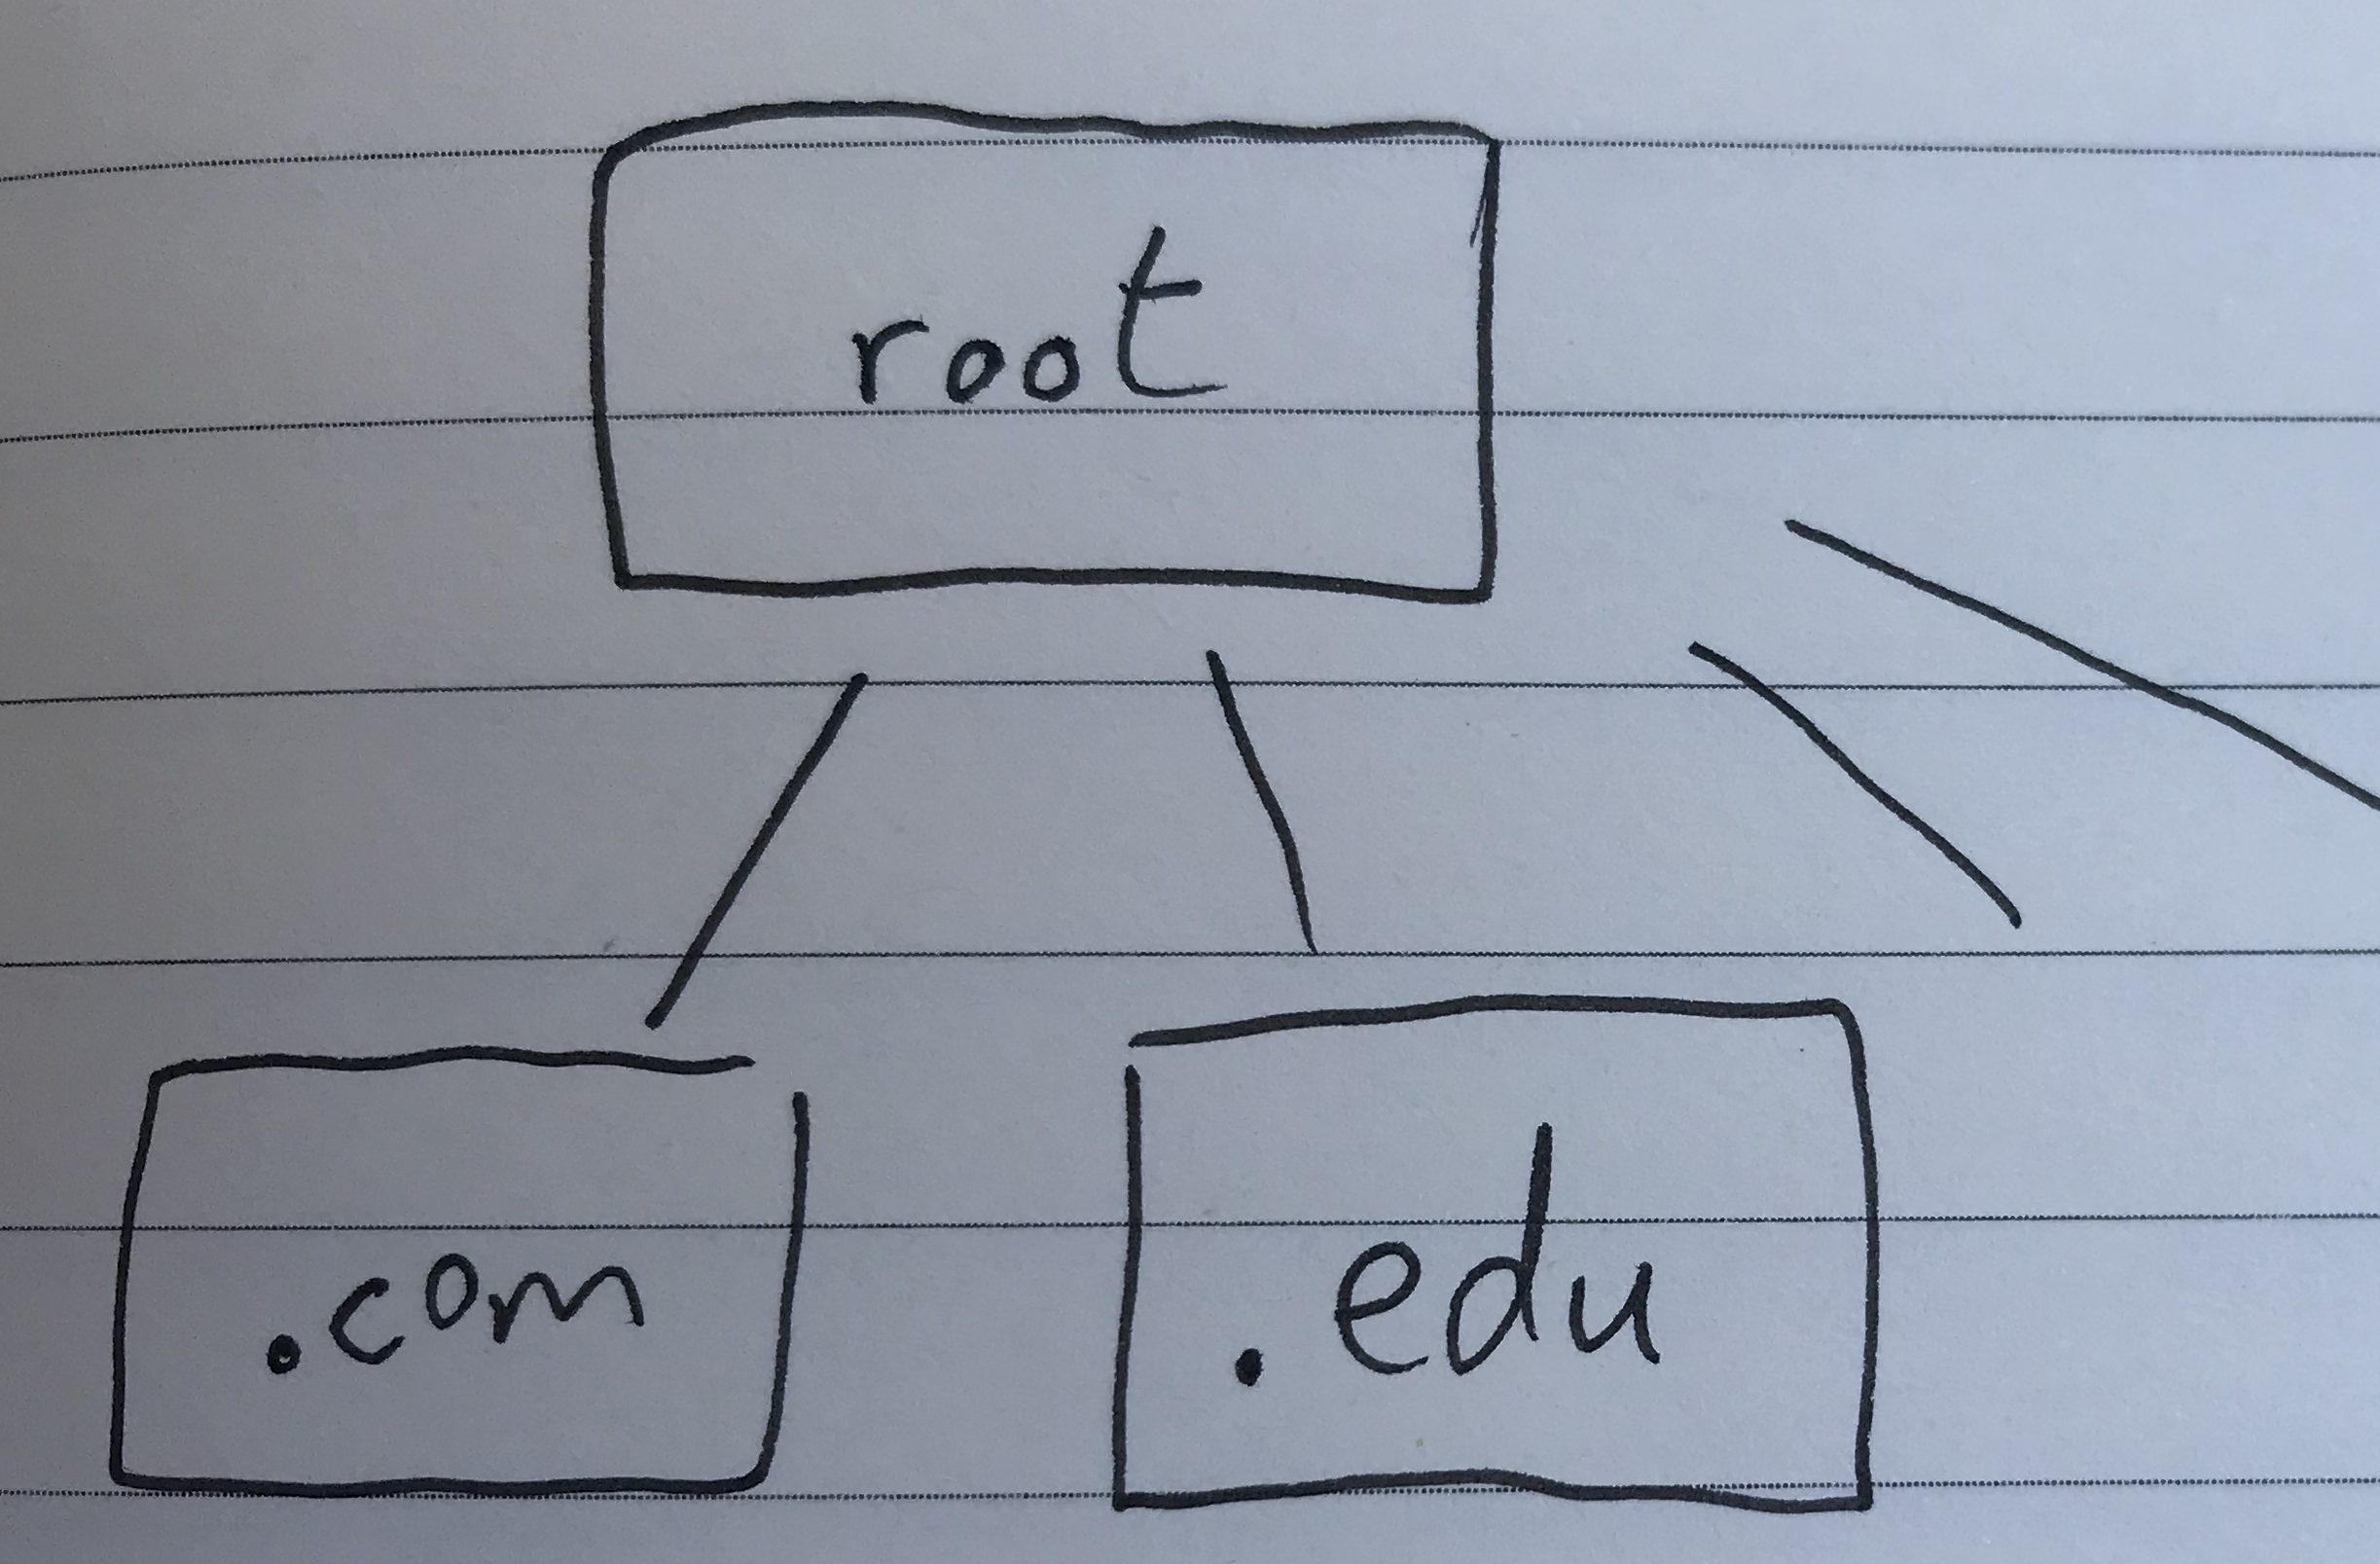 root
.com
.edu